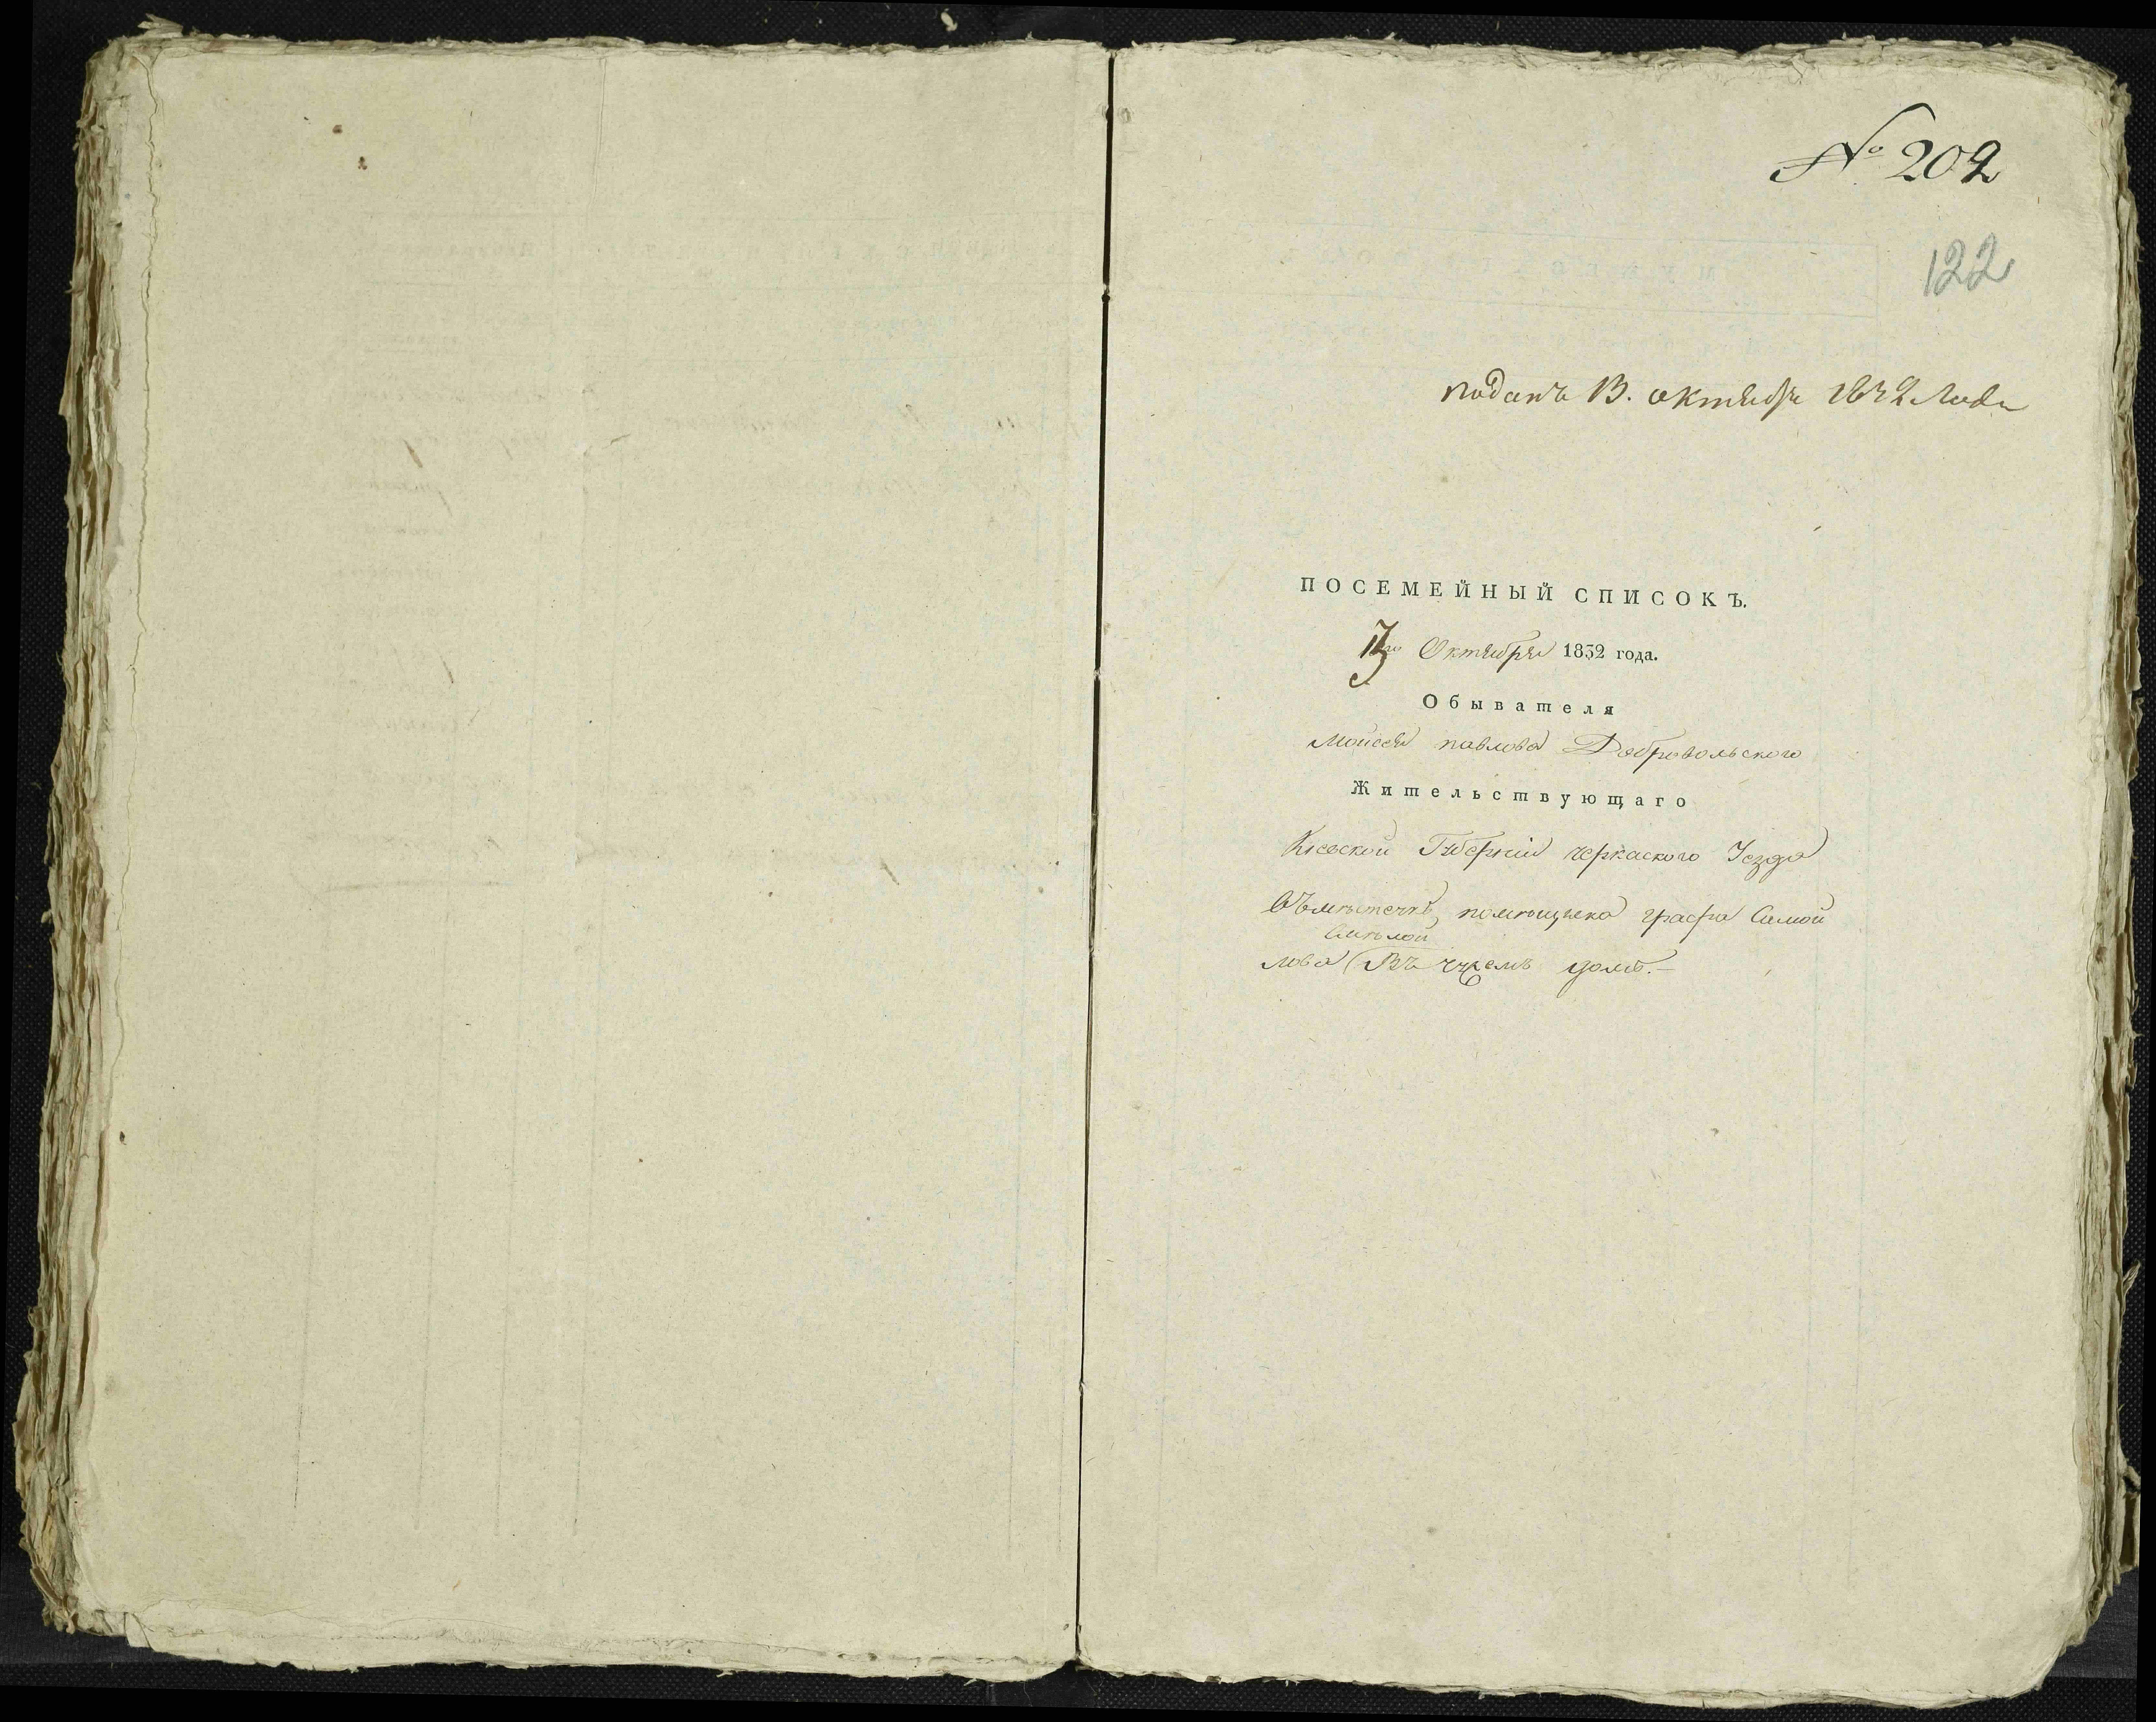 № 202
122
поданъ 13. октября 1832 года
ПОСЕМЕЙНЫЙ СПИСОКЪ.
Октября 1832 года.
Обывателя
Мойсея павлова Добровольского
Жительствующаго
Киевской Губерніи черкаского Уезда
Въместечкѣ, помещика графа Самой
Смѣлой
лова Въ чужемъ доме.-